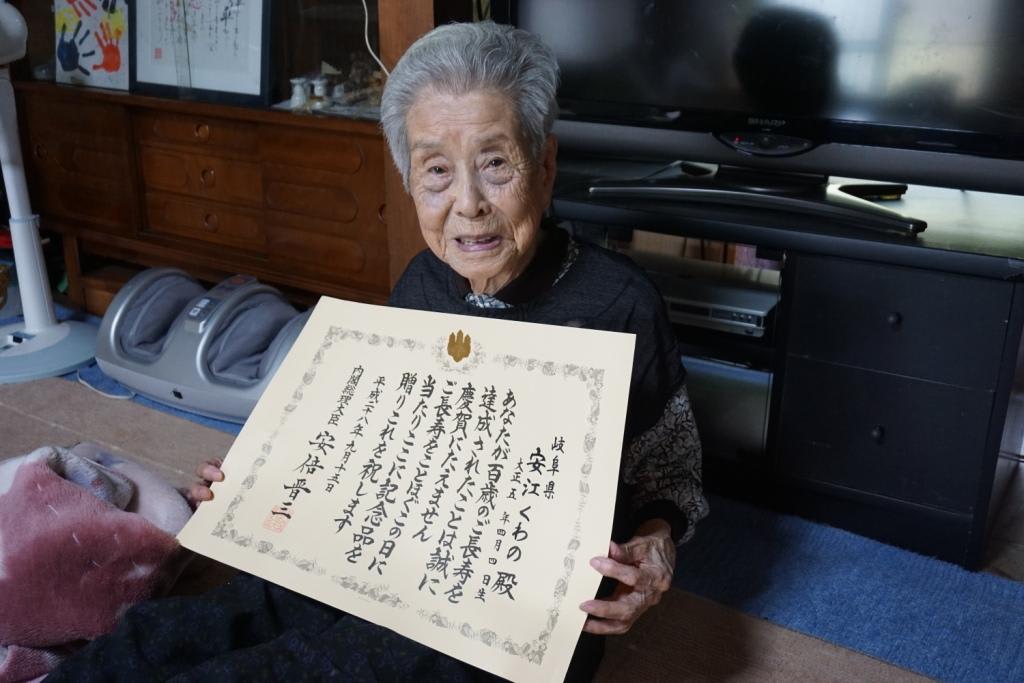 岐阜県
安江くわの殿
大正五年四月四日生
あなたが百歳のご長寿を
達成されたことは誠に
慶賀にたえません
ご長寿をことほぐこの日に
当たりここに記念品を
贈りこれを祝します
平成二八年九月十五日
内閣総理大臣 安倍晋三
SHARP